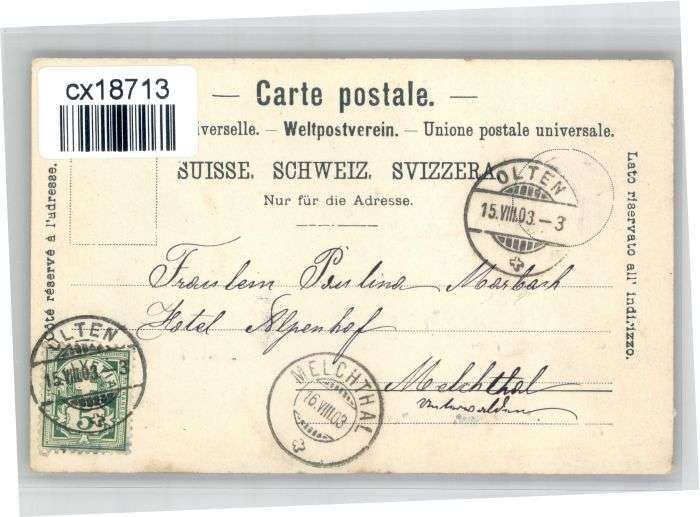 cx18713
— Carte postale. —
iverselle. — Weltpostverein. — Unione postale universale.
SUISSE. SCHWEIZ. SVIZZERA
Nur für die Adresse.
Côté réservé à l'adresse.
Lato riservato all' indirizzo.
OLTEN
15.VIII.03.–3
Fräulein Paulina Marbach
Hotel Alpenhof
Melchthal
Unterwalden
OLTEN
15.VIII.03.–3
5
MELCHTHAL
16.VIII.03